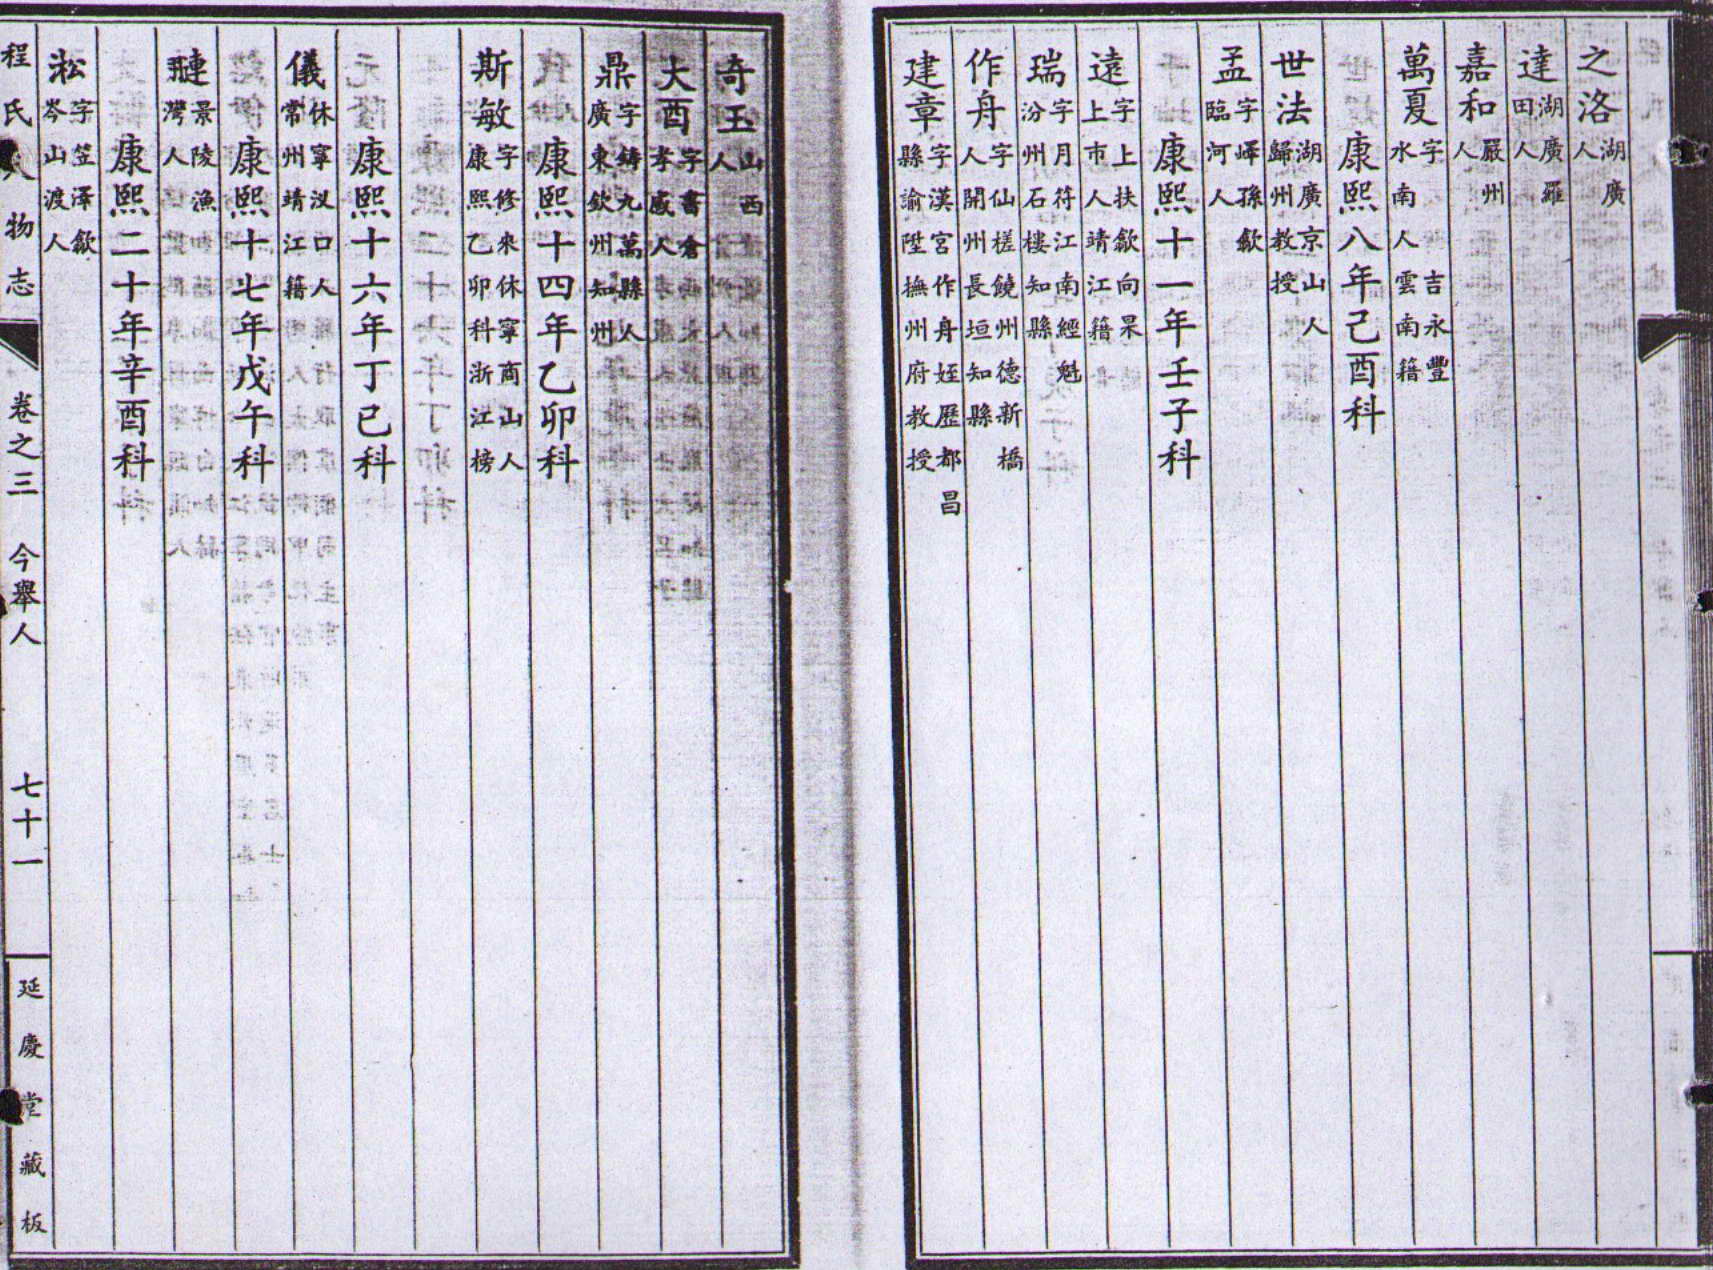 之洛湖廣人
達湖廣羅田人
嘉和嚴州人
萬夏字吉永豐水南人雲南籍
康熙八年己酉科
世法湖廣京山人歸州教授
孟字嶧孫歙臨河人
康熙十一年壬子科
遠字上扶歙向杲上市人靖江籍
瑞字月符江南經魁汾州石樓知縣
作舟字仙槎饒州德新橋人開州長垣知縣
建章字漢宮作舟姪歷都昌縣諭陞撫州府教授
奇玉山西人
大酉字書倉孝感人
鼎字鑄九萬縣人廣東欽州知州
康熙十四年乙卯科
斯敏字修來休寧商山人康熙乙卯科浙江榜
康熙十六年丁巳科
儀休寧汊口人常州靖江籍
康熙十七年戊午科
璉景陵漁灣人
康熙二十年辛酉科
淞字笠澤歙岑山渡人
程氏人物志 卷之三 今舉人 七十一 延慶堂藏板